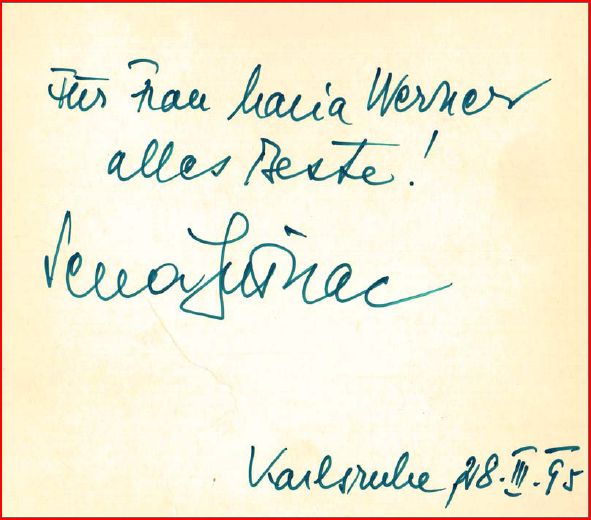 Für Frau Maria Werner
alles Beste!
Sena Jurinac
Karlsruhe, 28. III. 95